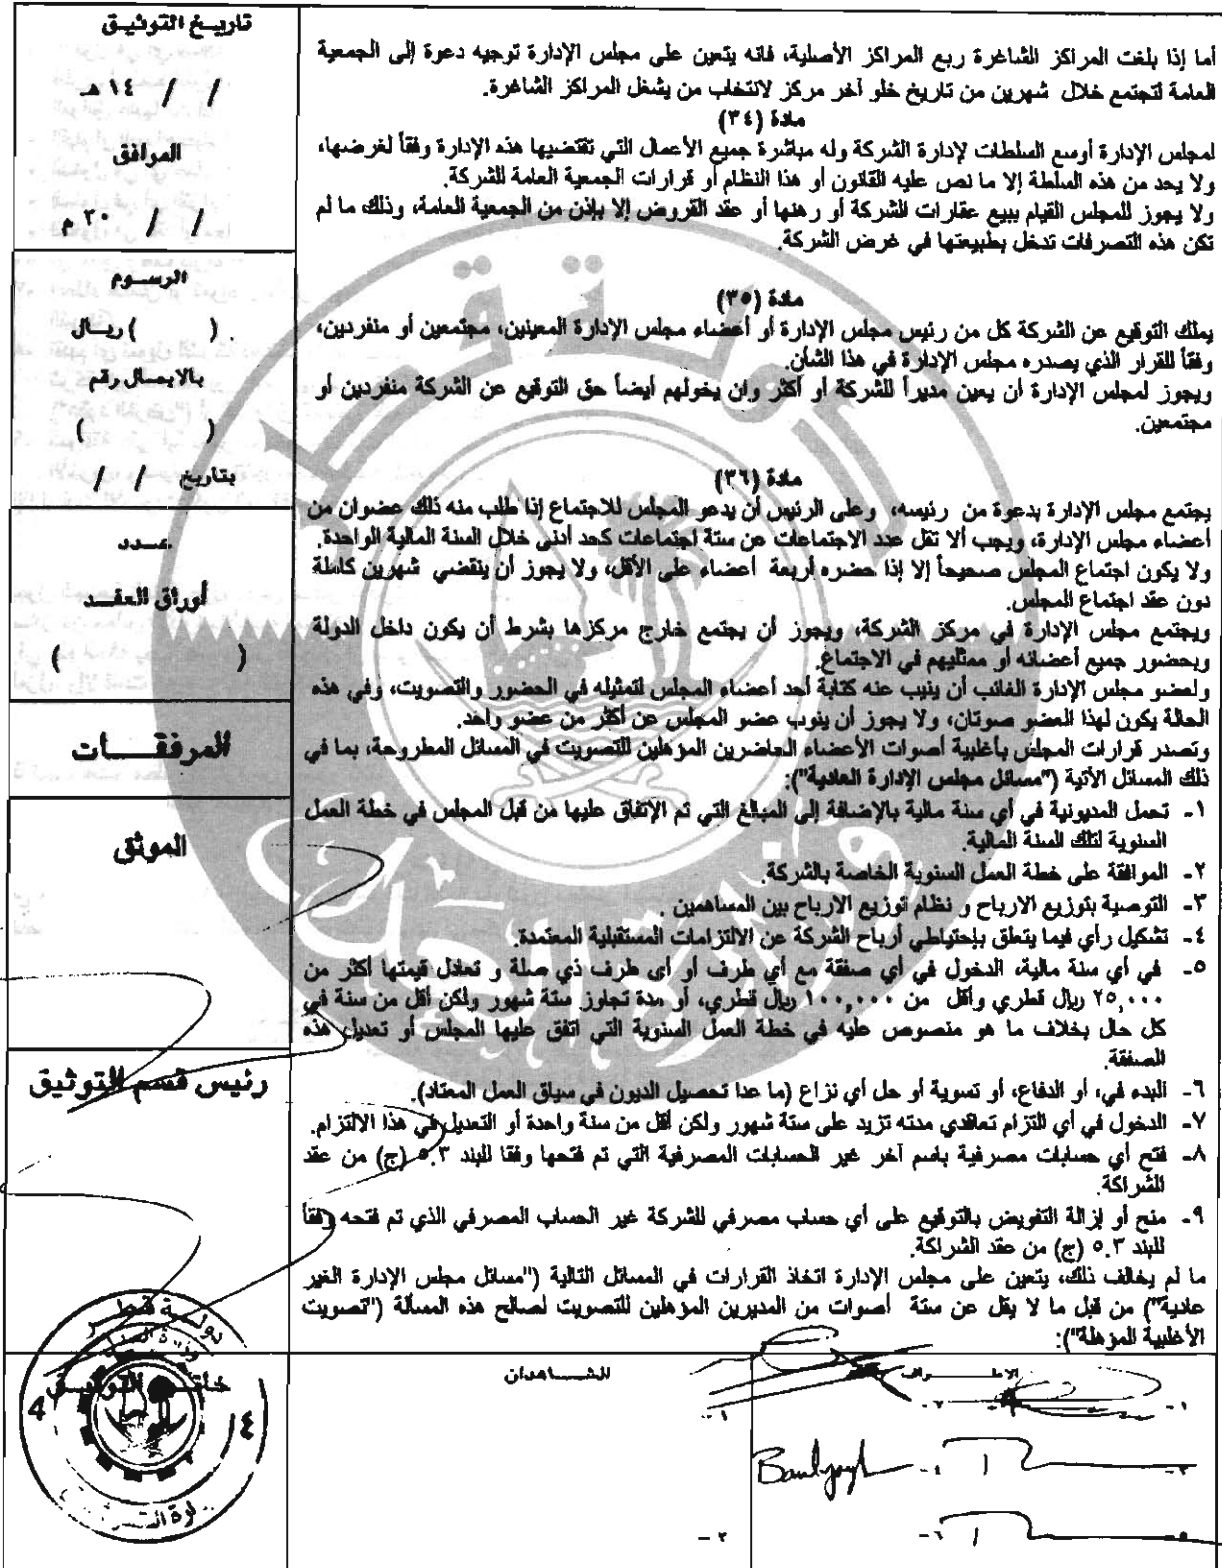 أما إذا بلغت المراكز الشاغرة ربع المراكز الأصلية، فانه يتعين على مجلس الإدارة توجيه دعوة إلى الجمعية
العامة لتجتمع خلال شهرين من تاريخ خلو آخر مركز لانتخاب من يشغل المراكز الشاغرة.
مادة (٣٤)
لمجلس الإدارة أوسع السلطات لإدارة الشركة وله مباشرة جميع الأعمال التي تقتضيها هذه الإدارة وفقاً لغرضها،
ولا يحد من هذه السلطة إلا ما نص عليه القانون أو هذا النظام أو قرارات الجمعية العامة للشركة.
ولا يجوز للمجلس القيام ببيع عقارات الشركة أو رهنها أو عقد القروض إلا بإذن من الجمعية العامة، وذلك ما لم
تكن هذه التصرفات تدخل بطبيعتها في غرض الشركة.
مادة (٣٥)
يملك التوقيع عن الشركة كل من رئيس مجلس الإدارة أو أعضاء مجلس الإدارة المعينين، مجتمعين أو منفردين،
وفقاً للقرار الذي يصدره مجلس الإدارة في هذا الشأن.
ويجوز لمجلس الإدارة أن يعين مديراً للشركة أو أكثر وان يخولهم أيضاً حق التوقيع عن الشركة منفردين أو
مجتمعين.
مادة (٣٦)
يجتمع مجلس الإدارة بدعوة من رئيسه، وعلى الرئيس أن يدعو المجلس للاجتماع إذا طلب منه ذلك عضوان من
أعضاء مجلس الإدارة، ويجب ألا تقل عدد الاجتماعات عن ستة اجتماعات كحد أدنى خلال السنة المالية الواحدة.
ولا يكون اجتماع المجلس صحيحاً إلا إذا حضره أربعة أعضاء على الأقل، ولا يجوز أن ينقضي شهرين كاملة
دون عقد اجتماع المجلس.
ويجتمع مجلس الإدارة في مركز الشركة، ويجوز أن يجتمع خارج مركزها بشرط أن يكون داخل الدولة
وبحضور جميع أعضائه أو ممثليهم في الاجتماع.
ولعضو مجلس الإدارة الغائب أن ينيب عنه كتابة أحد أعضاء المجلس لتمثيله في الحضور والتصويت، وفي هذه
الحالة يكون لهذا العضو صوتان، ولا يجوز أن ينوب عضو المجلس عن أكثر من عضو واحد.
وتصدر قرارات المجلس بأغلبية أصوات الأعضاء الحاضرين المؤهلين للتصويت في المسائل المطروحة، بما في
ذلك المسائل الآتية ("مسائل مجلس الإدارة العادية"):
١- تحمل المديونية في أي سنة مالية بالإضافة إلى المبالغ التي تم الإتفاق عليها من قبل المجلس في خطة العمل
السنوية لتلك السنة المالية.
٢- الموافقة على خطة العمل السنوية الخاصة بالشركة.
٣- التوصية بتوزيع الارباح و نظام توزيع الارباح بين المساهمين .
٤- تشكيل رأي فيما يتعلق بإحتياطي أرباح الشركة عن الالتزامات المستقبلية المعتمدة.
٥- في أي سنة مالية، الدخول في أي صفقة مع أي طرف أو أي طرف ذي صلة و تعادل قيمتها أكثر من
٢٥,٠٠٠ ريال قطري وأقل من ١٠٠,٠٠٠ ريال قطري، أو مدة تجاوز ستة شهور ولكن أقل من سنة في
كل حال بخلاف ما هو منصوص عليه في خطة العمل السنوية التي اتفق عليها المجلس أو تعديل هذه
الصفقة.
٦- البدء في، أو الدفاع، أو تسوية أو حل أي نزاع (ما عدا تحصيل الديون في سياق العمل المعتاد).
٧- الدخول في أي التزام تعاقدي مدته تزيد على ستة شهور ولكن أقل من سنة واحدة أو التعديل في هذا الالتزام.
٨- فتح أي حسابات مصرفية باسم آخر غير الحسابات المصرفية التي تم فتحها وفقا للبند ٥.٣ (ج) من عقد
الشراكة.
٩- منح أو إزالة التفويض بالتوقيع على أي حساب مصرفي للشركة غير الحساب المصرفي الذي تم فتحه وفقاً
للبند ٥.٣ (ج) من عقد الشراكة.
ما لم يخالف ذلك، يتعين على مجلس الإدارة اتخاذ القرارات في المسائل التالية ("مسائل مجلس الإدارة الغير
عادية") من قبل ما لا يقل عن ستة أصوات من المديرين المؤهلين للتصويت لصالح هذه المسألة ("تصويت
الأغلبية المؤهلة"):
تاريخ التوثيق
/ / ١٤ هـ
الموافق
/ / ٢٠ م
الرسوم
( ) ريال
بالايصال رقم
( )
بتاريخ / /
عدد
أوراق العقد
( )
المرفقات
الموثق
رئيس قسم التوثيق
خاتم التوثيق
دولة قطر
وزارة العدل
4 ٤
الاطراف
١-
٢-
٣-
٤-
٥-
٦-
الشاهدان
١-
٢-